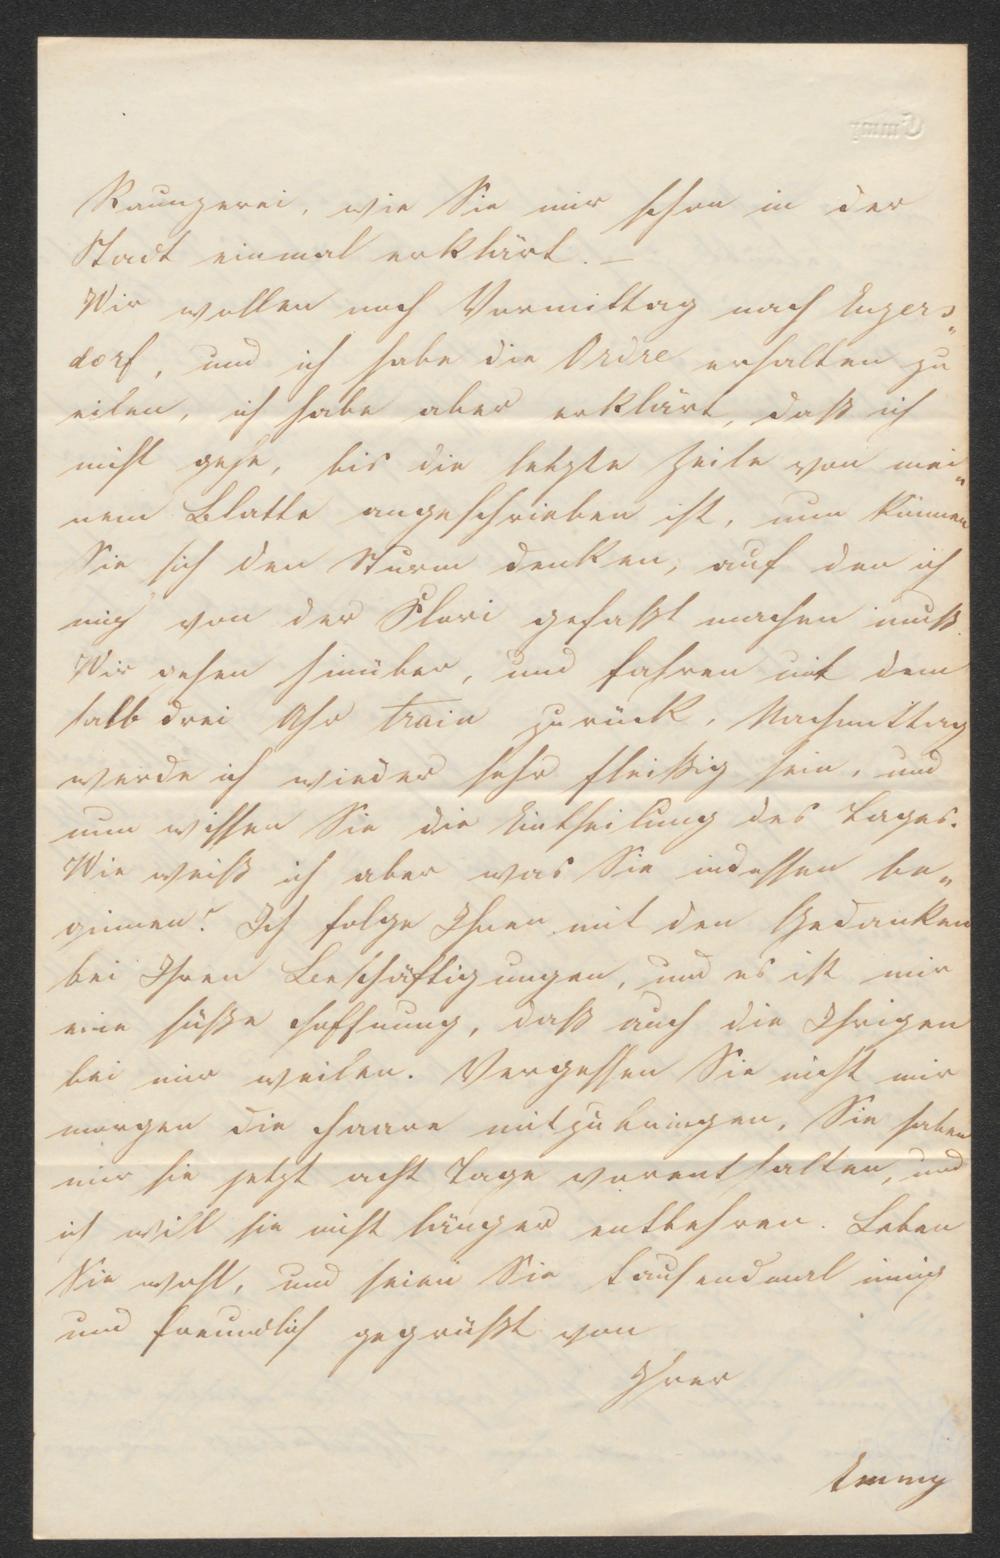 Raunzerei, wie Sie mir schon in der
Stadt einmal erklärt. –
Wir wollen noch Vormittag nach Enzers„
dorf, und ich habe die Ordre erhalten zu
eilen, ich habe aber erklärt, daß ich
nicht gehe, bis die letzte Zeile von mei„
nem Blatte angeschrieben ist, nun können
Sie sich den Sturm denken, auf den ich
mich von der Flori gefaßt machen muß.
Wir gehen hinüber, und fahren mit dem
halb drei Uhr train zurück, Nachmittag
werde ich wieder sehr fleißig sein, und
nun wissen Sie die Eintheilung des Tages.
Wie weiß ich aber was Sie indessen be„
ginnen? Ich folge Ihnen mit den Gedanken
bei Ihren Beschäftigungen, und es ist mir
eine süße Hoffnung, daß auch die Ihrigen
bei mir weilen. Vergessen Sie nicht mir
morgen die Haare mitzubringen, Sie haben
mir sie jetzt acht Tage vorenthalten, und
ich will sie nicht länger entbehren. Leben
Sie wohl, und seien Sie tausendmal innig
und freundlich gegrüßt von
Ihrer
Emmy